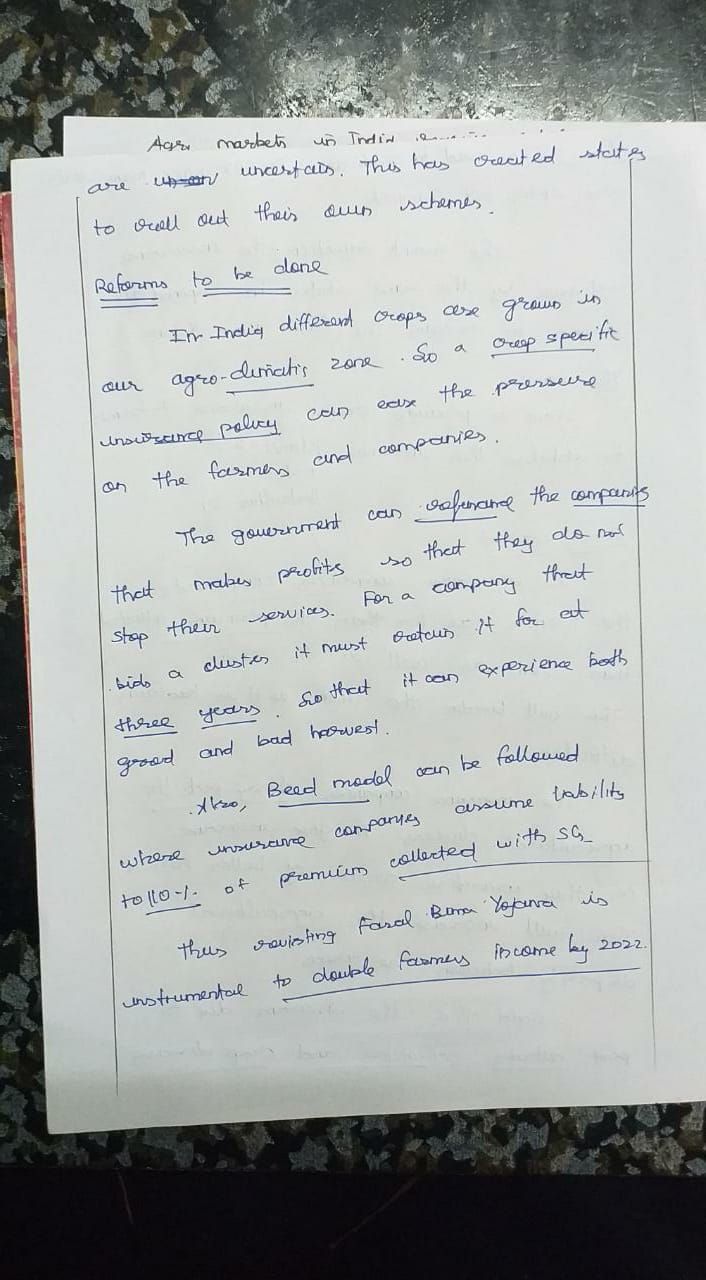 Agri markets in India
are uncertain. This has created states
to roll out their own schemes.
Reforms to be done
In India different crops are grown in
our agro-climatic zone. So a crop specific
insurance policy can ease the pressure
on the farmers and companies.
The government can the companies
that makes profits so that they do not
stop their services. For a company that
bids a cluster it must retain it for at
three years. So that it can experience both
good and bad harvest.
Also, Beed model can be followed
where insurance companies assume liability
to 110% of premium collected with SG
Thus revisiting Fasal Bima Yojana is
instrumental to double farmers income by 2022.